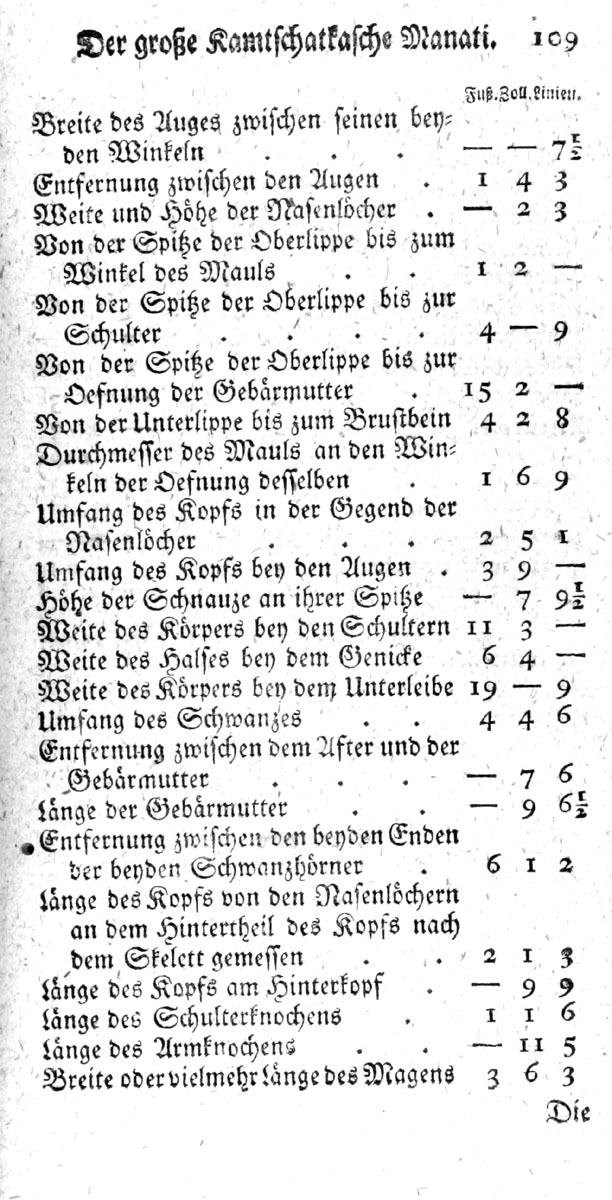 Der große Kamtschatkasche Manati. 109
Fuß. Zoll. Linien.
Breite des Auges zwischen seinen bey-
den Winkeln . . . — — 7½
Entfernung zwischen den Augen . 1 4 3
Weite und Höhe der Nasenlöcher . — 2 3
Von der Spitze der Oberlippe bis zum
Winkel des Mauls . . 1 2 —
Von der Spitze der Oberlippe bis zur
Schulter . . . . 4 — 9
Von der Spitze der Oberlippe bis zur
Oefnung der Gebärmutter . 15 2 —
Von der Unterlippe bis zum Brustbein 4 2 8
Durchmesser des Mauls an den Win-
keln der Oefnung desselben . 1 6 9
Umfang des Kopfs in der Gegend der
Nasenlöcher . . . 2 5 1
Umfang des Kopfs bey den Augen . 3 9 —
Höhe der Schnauze an ihrer Spitze — 7 9½
Weite des Körpers bey den Schultern 11 3 —
Weite des Halses bey dem Genicke 6 4 —
Weite des Körpers bey dem Unterleibe 19 — 9
Umfang des Schwanzes . . 4 4 6
Entfernung zwischen dem After und der
Gebärmutter . . . — 7 6
Länge der Gebärmutter . . — 9 6½
Entfernung zwischen den beyden Enden
der beyden Schwanzhörner . 6 1 2
Länge des Kopfs von den Nasenlöchern
an dem Hintertheil des Kopfs nach
dem Skelett gemessen . . 2 1 3
Länge des Kopfs am Hinterkopf . — 9 9
Länge des Schulterknochens . 1 1 6
Länge des Armknochens . . — 11 5
Breite oder vielmehr Länge des Magens 3 6 3
Die